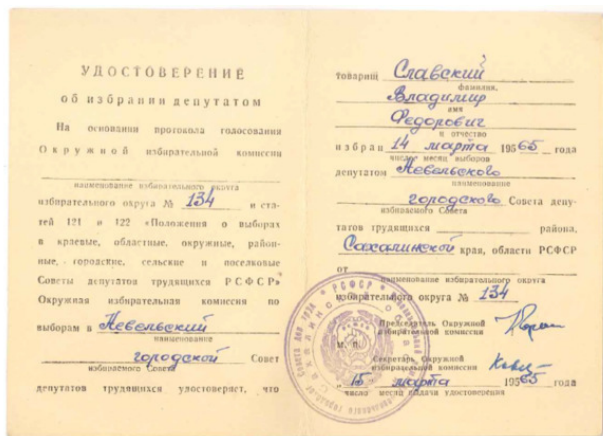 УДОСТОВЕРЕНИЕ
об избрании депутатом
На основании протокола голосования
Окружной избирательной комиссии
наименование избирательного округа
избирательного округа № 134 и ста-
тей 121 и 122 «Положения о выборах
в краевые, областные, окружные, район-
ные, городские, сельские и поселковые
Советы депутатов трудящихся РСФСР»
Окружная избирательная комиссия по
выборам в Невельский
наименование
городской Совет
избираемого Совета
депутатов трудящихся удостоверяет, что
товарищ Славский
фамилия,
Владимир
имя
Федорович
и отчество
избран 14 марта 1965 года
число месяц выборов
депутатом Невельского
наименование
городского Совета депу-
избираемого Совета
татов трудящихся района,
Сахалинской края, области РСФСР
от
наименование избирательного округа
избирательного округа № 134
Председатель Окружной
избирательной комиссии
М. П.
Секретарь Окружной
избирательной комиссии
„15 марта 1965 года
число месяц выдачи удостоверения
РСФСР